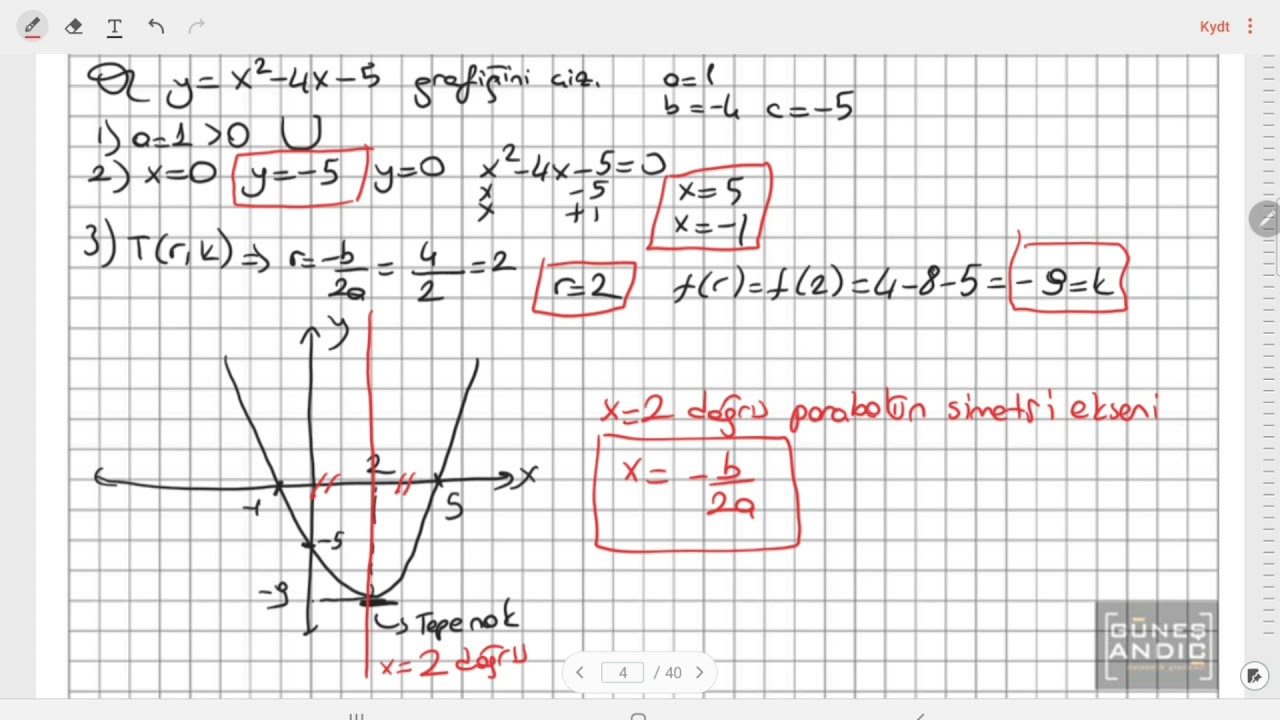 Kydt
Ör y = x² - 4x - 5 grafiğini çiz. a=1
b = -4 c = -5
1) a=1 >0 U
2) x=0 y=-5 y=0 x² - 4x - 5 = 0
x -5 x=5
x +1 x=-1
3) T(r,k) ⇒ r = -b/2a = 4/2 = 2 r=2 f(r) = f(2) = 4-8-5 = -9=k
y
x=2 doğru parabolün simetri ekseni
2 x
x = -b/2a
-1 5
-5
-9
↳ Tepe nok
x=2 doğru
4 / 40
GÜNEŞ
ANDIÇ